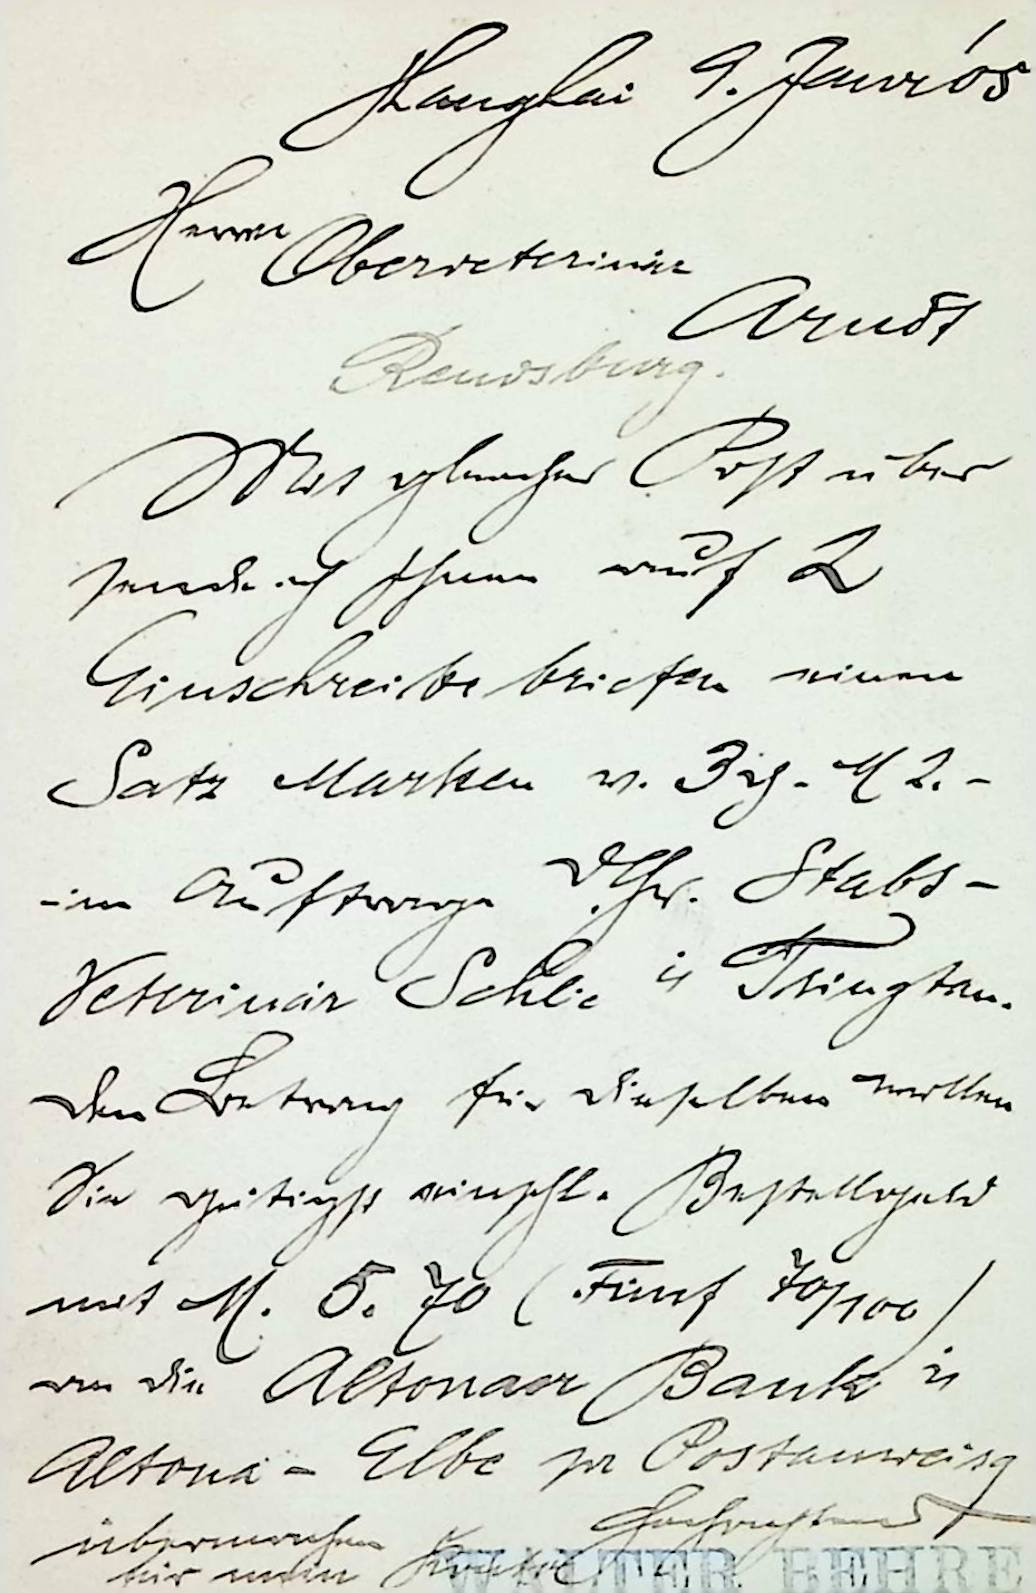 Shanghai 9. Januar 05
Herrn
Oberveterinär
Arndt
Rendsburg.
Mit gleicher Post über
sende ich Ihnen auf 2
Einschreibebriefen einen
Satz Marken v. 3 Pfg. - M 2. -
im Auftrage d. Hr. Stabs-
Veterinär Schlie in Tsingtau.
Den Betrag für dieselben wollen
Sie gütigst einschl. Bestellgeld
mit M. 5.70 (Fünf 70/100)
an die Altonaer Bank in
Altona - Elbe pr Postanweisg
übermachen Hochachtend
für mein Konto WALTER BEHRE